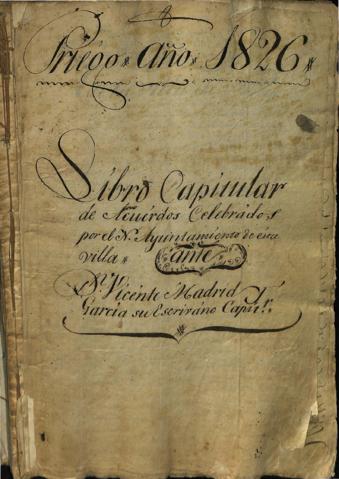 Priego. Año. 1826.
Libro Capitular
de Acuerdos Celebrados
por el N. Ayuntamiento de esta
villa. ante
Dn. Vicente Madrid y
Garcia su Escrivano Capitr.